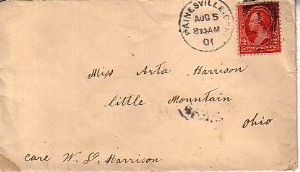 PAINESVILLE, OHIO
AUG 5
8 30 AM
01
Miss Arta Harrison
Little Mountain
Ohio
Care W. S. Harrison